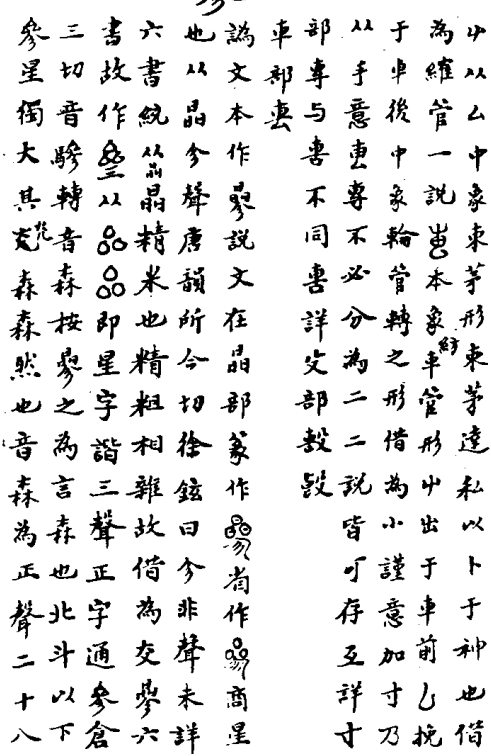 屮从厶中象束茅形束茅達私以卜于神也借
為維管一説叀本象紡車管形屮出于車前乙挽
于車後中象輪管轉之形借為小謹意加寸乃
从手意叀專不必分為二二説皆可存互詳寸
部專与專不同專詳攴部毃毀
車部軎
譌文本作曑説文在晶部篆作曑省作曑商星
也从晶㐱聲唐韻所今切徐鉉曰㐱非聲未詳
六書統从晶晶精米也精粗相雜故借為交曑六
書故作曑从晶晶即星字諧三聲正字通參倉
三切音驂轉音森按曑之為言森也北斗以下
參星獨大其芒森森然也音森為正聲二十八